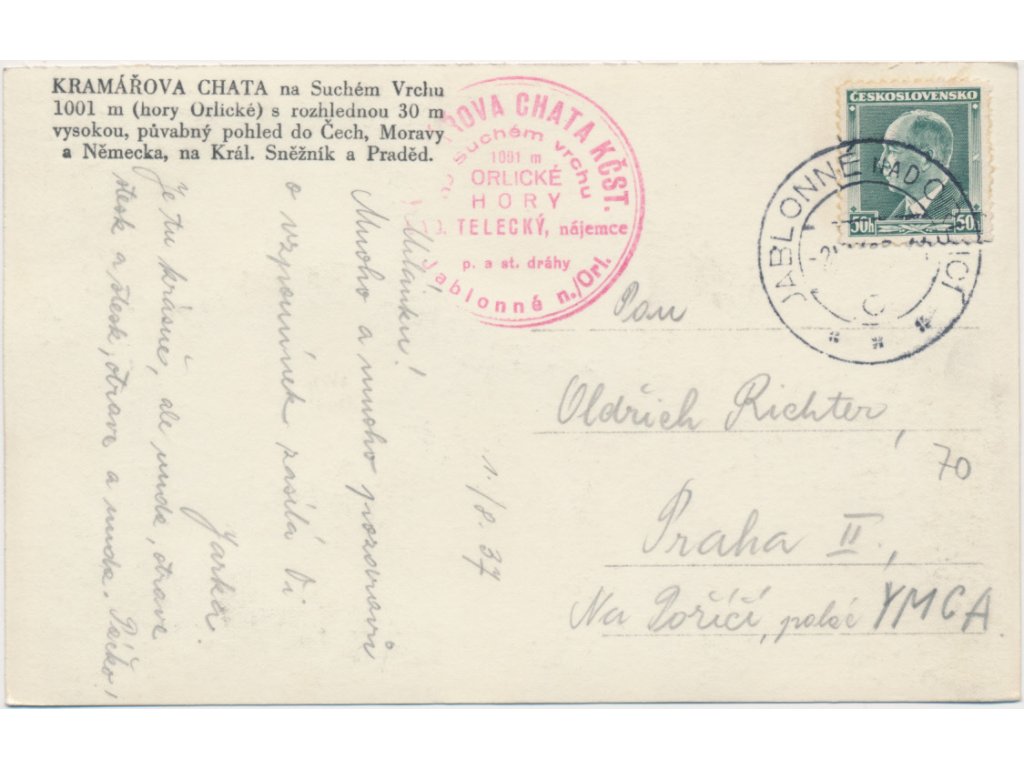 KRAMÁŘOVA CHATA na Suchém Vrchu
1001 m (hory Orlické) s rozhlednou 30 m
vysokou, půvabný pohled do Čech, Moravy
a Německa, na Král. Sněžník a Praděd.
ROVA CHATA KČST.
Suchém vrchu
1001 m
ORLICKÉ
HORY
TELECKÝ, nájemce
p. a st. dráhy
Jablonné n./Orl.
ČESKOSLOVENSKO
50h 50h
JABLONNÉ NAD ORLICÍ
C
1./8. 37
Mnoho a mnoho pozdravů
a vzpomínek zasílá Ti
Jarka.
Je tu krásně, ale nuda, otrava
stesk a stesk, otrava a nuda.
Pan
Oldřich Richter,
70
Praha II.,
Na Poříčí, palác YMCA